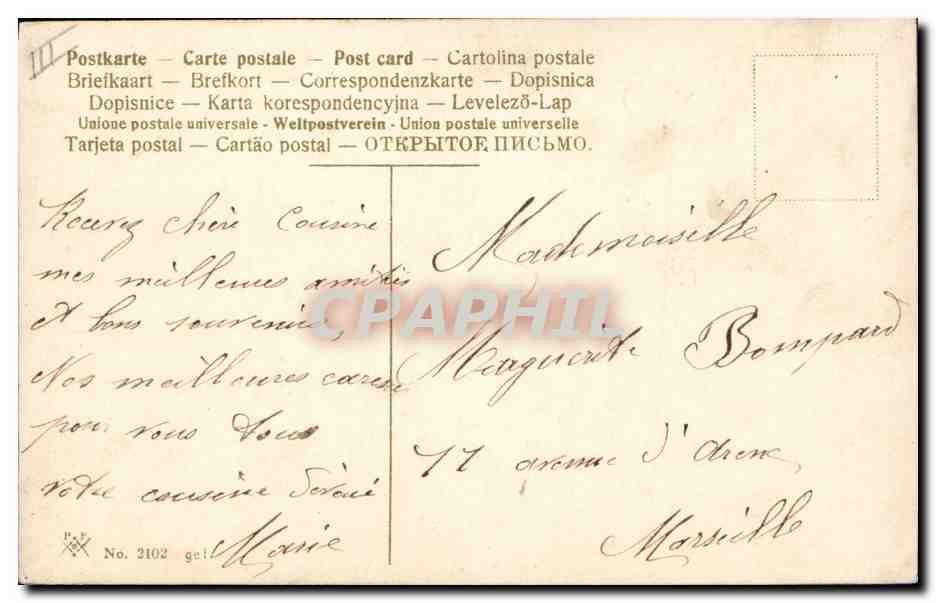 III
Postkarte — Carte postale — Post card — Cartolina postale
Briefkaart — Brefkort — Correspondenzkarte — Dopisnica
Dopisnice — Karta korespondencyjna — Levelező-Lap
Unione postale universale - Weltpostverein - Union postale universelle
Tarjeta postal — Cartão postal — ОТКРЫТОЕ ПИСЬМО.
Recevez chère Cousine
mes meilleures amitiés
et bons souvenirs,
Nos meilleures
pour vous tous
votre cousine dévoué
Marie
Mademoiselle
Maguerite Bompard
avenue d'Arenc
Marseille
CPAPHIL
P F
No. 2102 ge